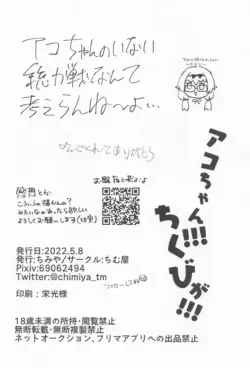 アコちゃんのいない
総力戦なんて
考えらんね〜よ…
よんでくれてありがとう
アコちゃん!!!
ちくびが!!!
お題箱だよ
感想とか
よろしくお願いします
フォローしてね
発行日:2022.5.8
発行:ちみや/サークル:ちむ屋
Pixiv:69062494
Twitter:@chimiya_tm
印刷:栄光様
18歳未満の所持・閲覧禁止
無断転載・無断複製禁止
ネットオークション、フリマアプリへの出品禁止